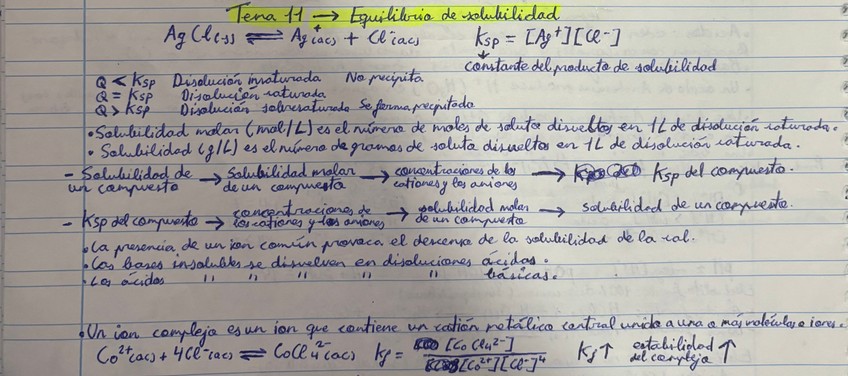 Tema 11 → Equilibrio de solubilidad
AgCl(s) ⇌ Ag⁺(ac) + Cl⁻(ac) Ksp = [Ag⁺][Cl⁻]
constante del producto de solubilidad
Q < Ksp Disolución insaturada No precipita
Q = Ksp Disolución saturada
Q > Ksp Disolución sobresaturada Se forma precipitado
• Solubilidad molar (mol/L) es el número de moles de soluto disueltos en 1L de disolución saturada.
• Solubilidad (g/L) es el número de gramos de soluto disueltos en 1L de disolución saturada.
- Solubilidad de un compuesto → Solubilidad molar de un compuesto → concentraciones de los cationes y los aniones → Ksp del compuesto.
- Ksp del compuesto → concentraciones de los cationes y los aniones → solubilidad molar de un compuesto → solubilidad de un compuesto.
• La presencia de un ion común provoca el descenso de la solubilidad de la sal.
• Las bases insolubles se disuelven en disoluciones ácidas.
• Los ácidos " " " " " básicas.
• Un ion complejo es un ion que contiene un catión metálico central unido a una o más moléculas o iones.
Co²⁺(ac) + 4Cl⁻(ac) ⇌ CoCl₄²⁻(ac) Kf = [CoCl₄²⁻] / [Co²⁺][Cl⁻]⁴ Kf ↑ estabilidad del complejo ↑